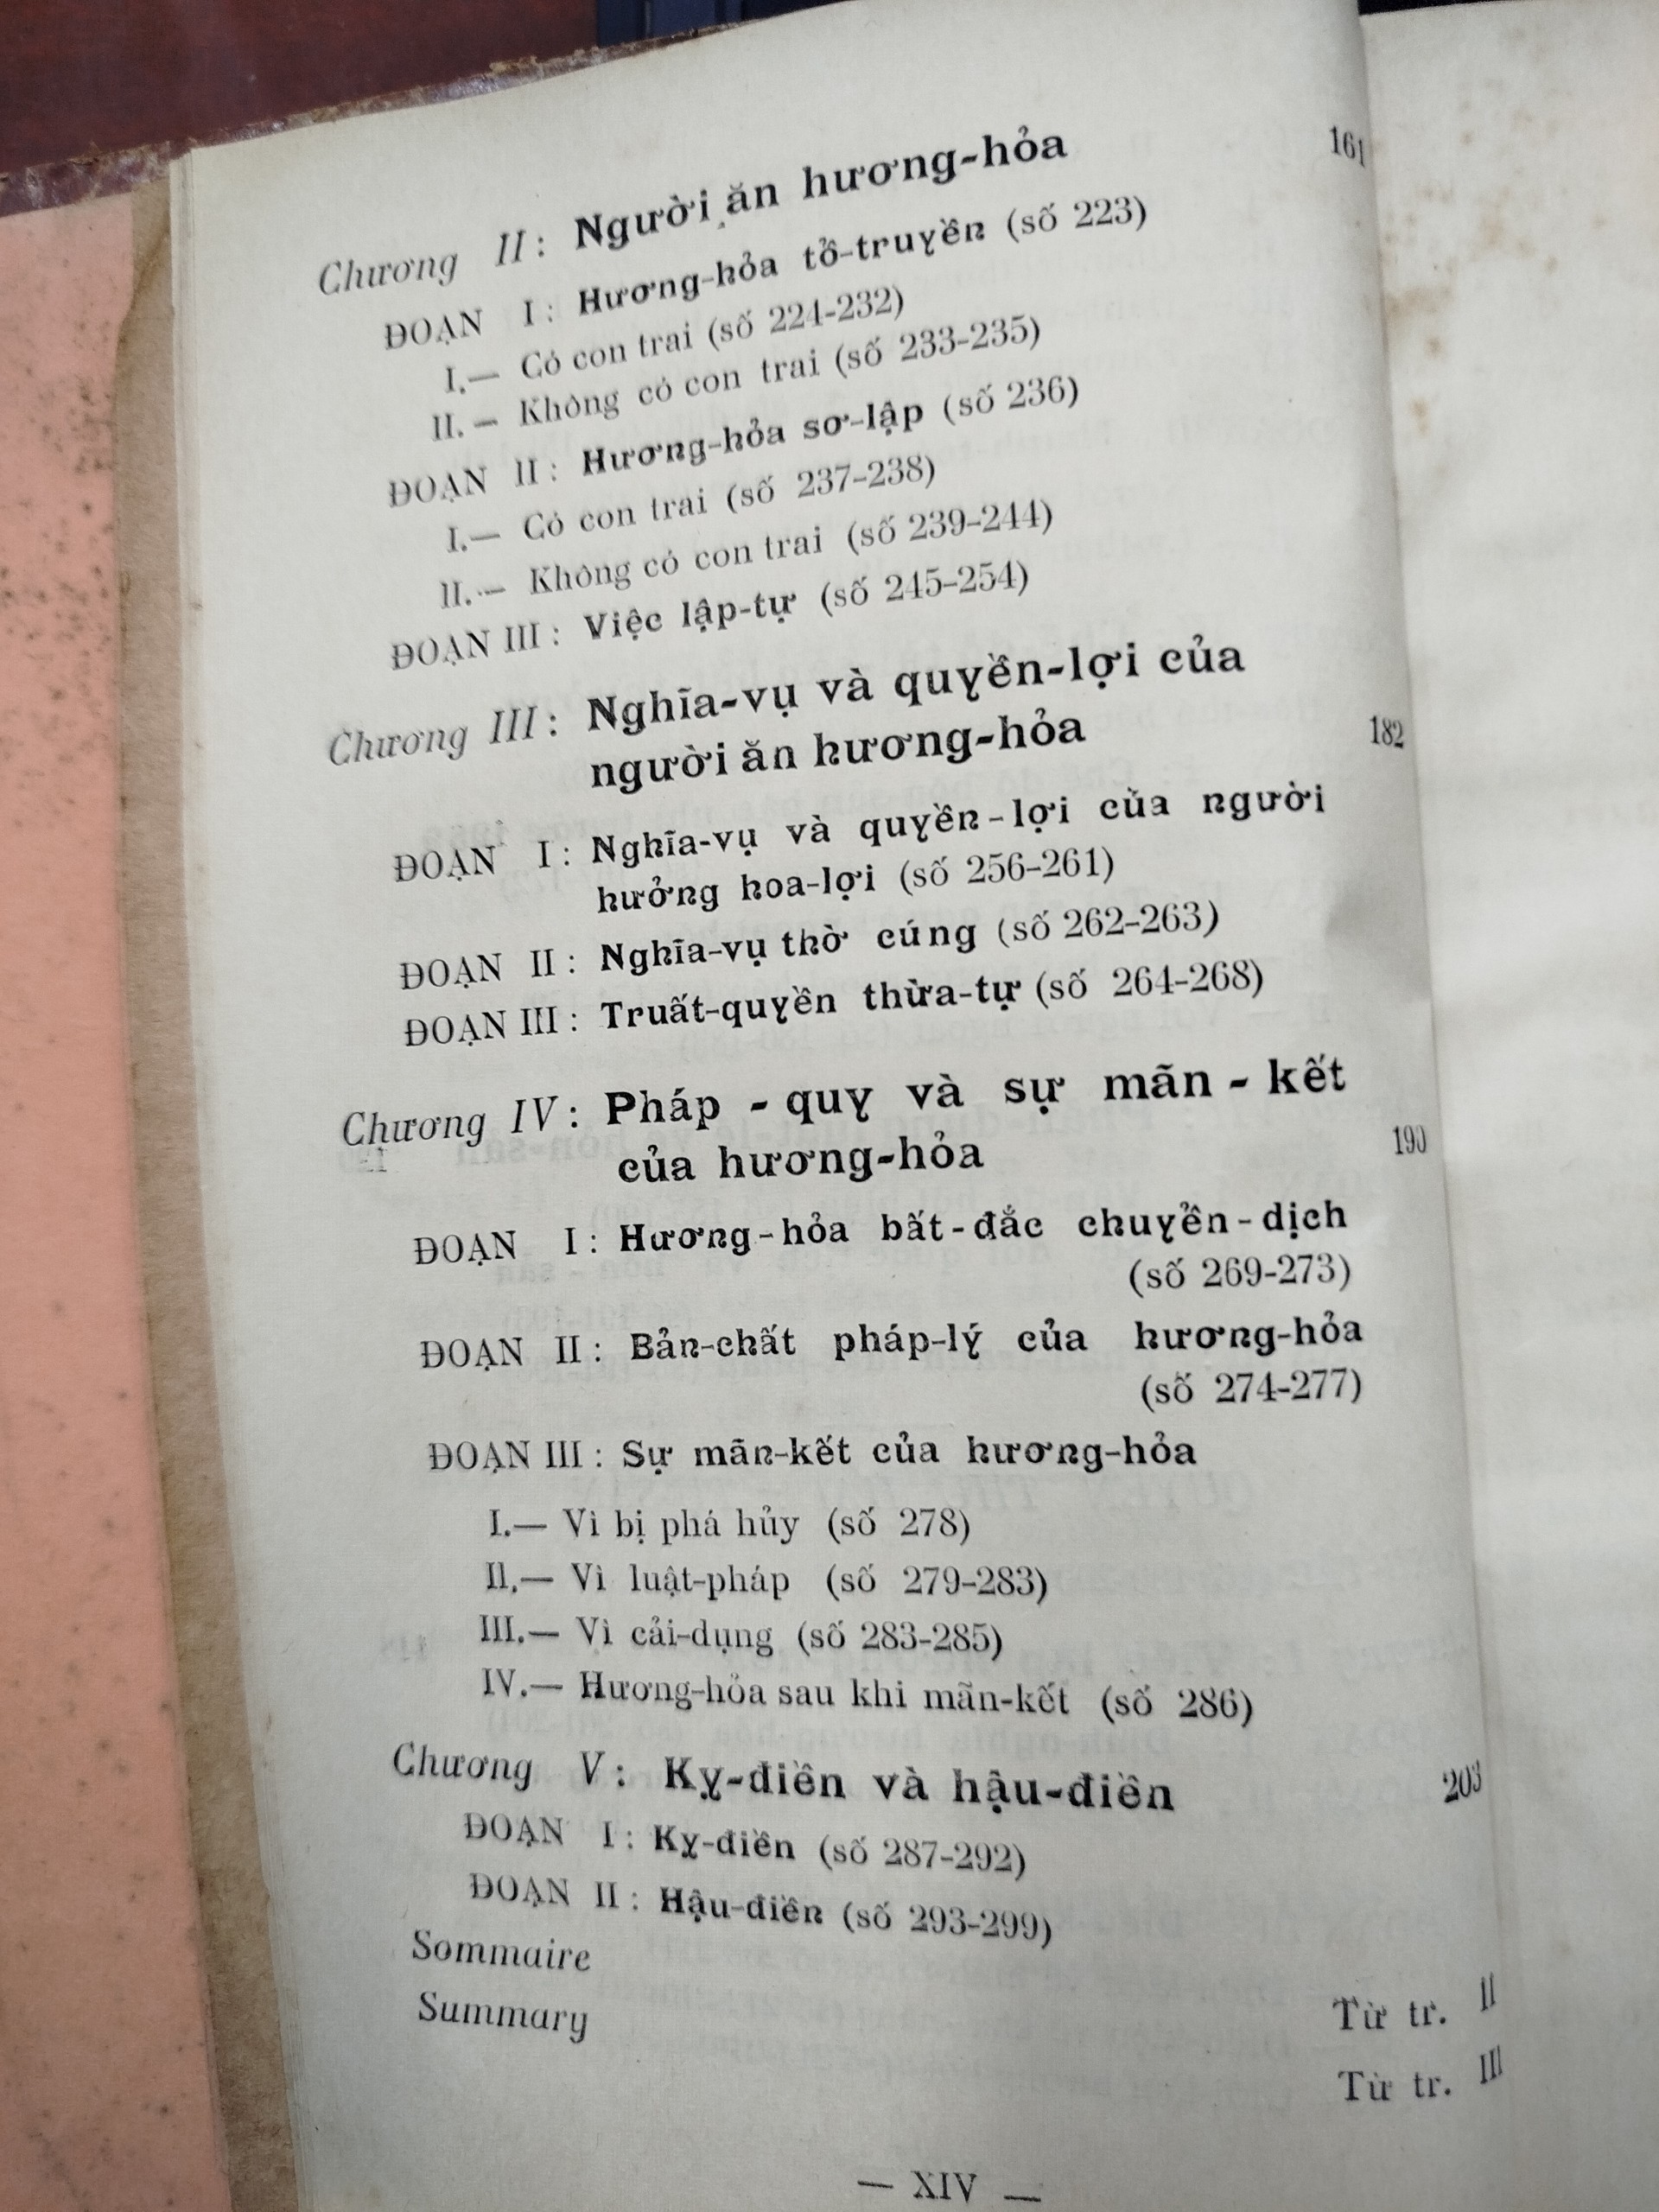 Chương II : Người ăn hương-hỏa 161
ĐOẠN I : Hương-hỏa tổ-truyền (số 223)
I.— Có con trai (số 224-232)
II.— Không có con trai (số 233-235)
ĐOẠN II : Hương-hỏa sơ-lập (số 236)
I.— Có con trai (số 237-238)
II.— Không có con trai (số 239-244)
ĐOẠN III : Việc lập-tự (số 245-254)
Chương III : Nghĩa-vụ và quyền-lợi của
người ăn hương-hỏa 182
ĐOẠN I : Nghĩa-vụ và quyền-lợi của người
hưởng hoa-lợi (số 256-261)
ĐOẠN II : Nghĩa-vụ thờ cúng (số 262-263)
ĐOẠN III : Truất-quyền thừa-tự (số 264-268)
Chương IV : Pháp - quy và sự mãn - kết
của hương-hỏa 190
ĐOẠN I : Hương-hỏa bất-đắc chuyển-dịch
(số 269-273)
ĐOẠN II : Bản-chất pháp-lý của hương-hỏa
(số 274-277)
ĐOẠN III : Sự mãn-kết của hương-hỏa
I.— Vì bị phá hủy (số 278)
II.— Vì luật-pháp (số 279-283)
III.— Vì cải-dụng (số 283-285)
IV.— Hương-hỏa sau khi mãn-kết (số 286)
Chương V : Kỵ-điền và hậu-điền 203
ĐOẠN I : Kỵ-điền (số 287-292)
ĐOẠN II : Hậu-điền (số 293-299)
Sommaire Từ tr. II
Summary Từ tr. III
— XIV —